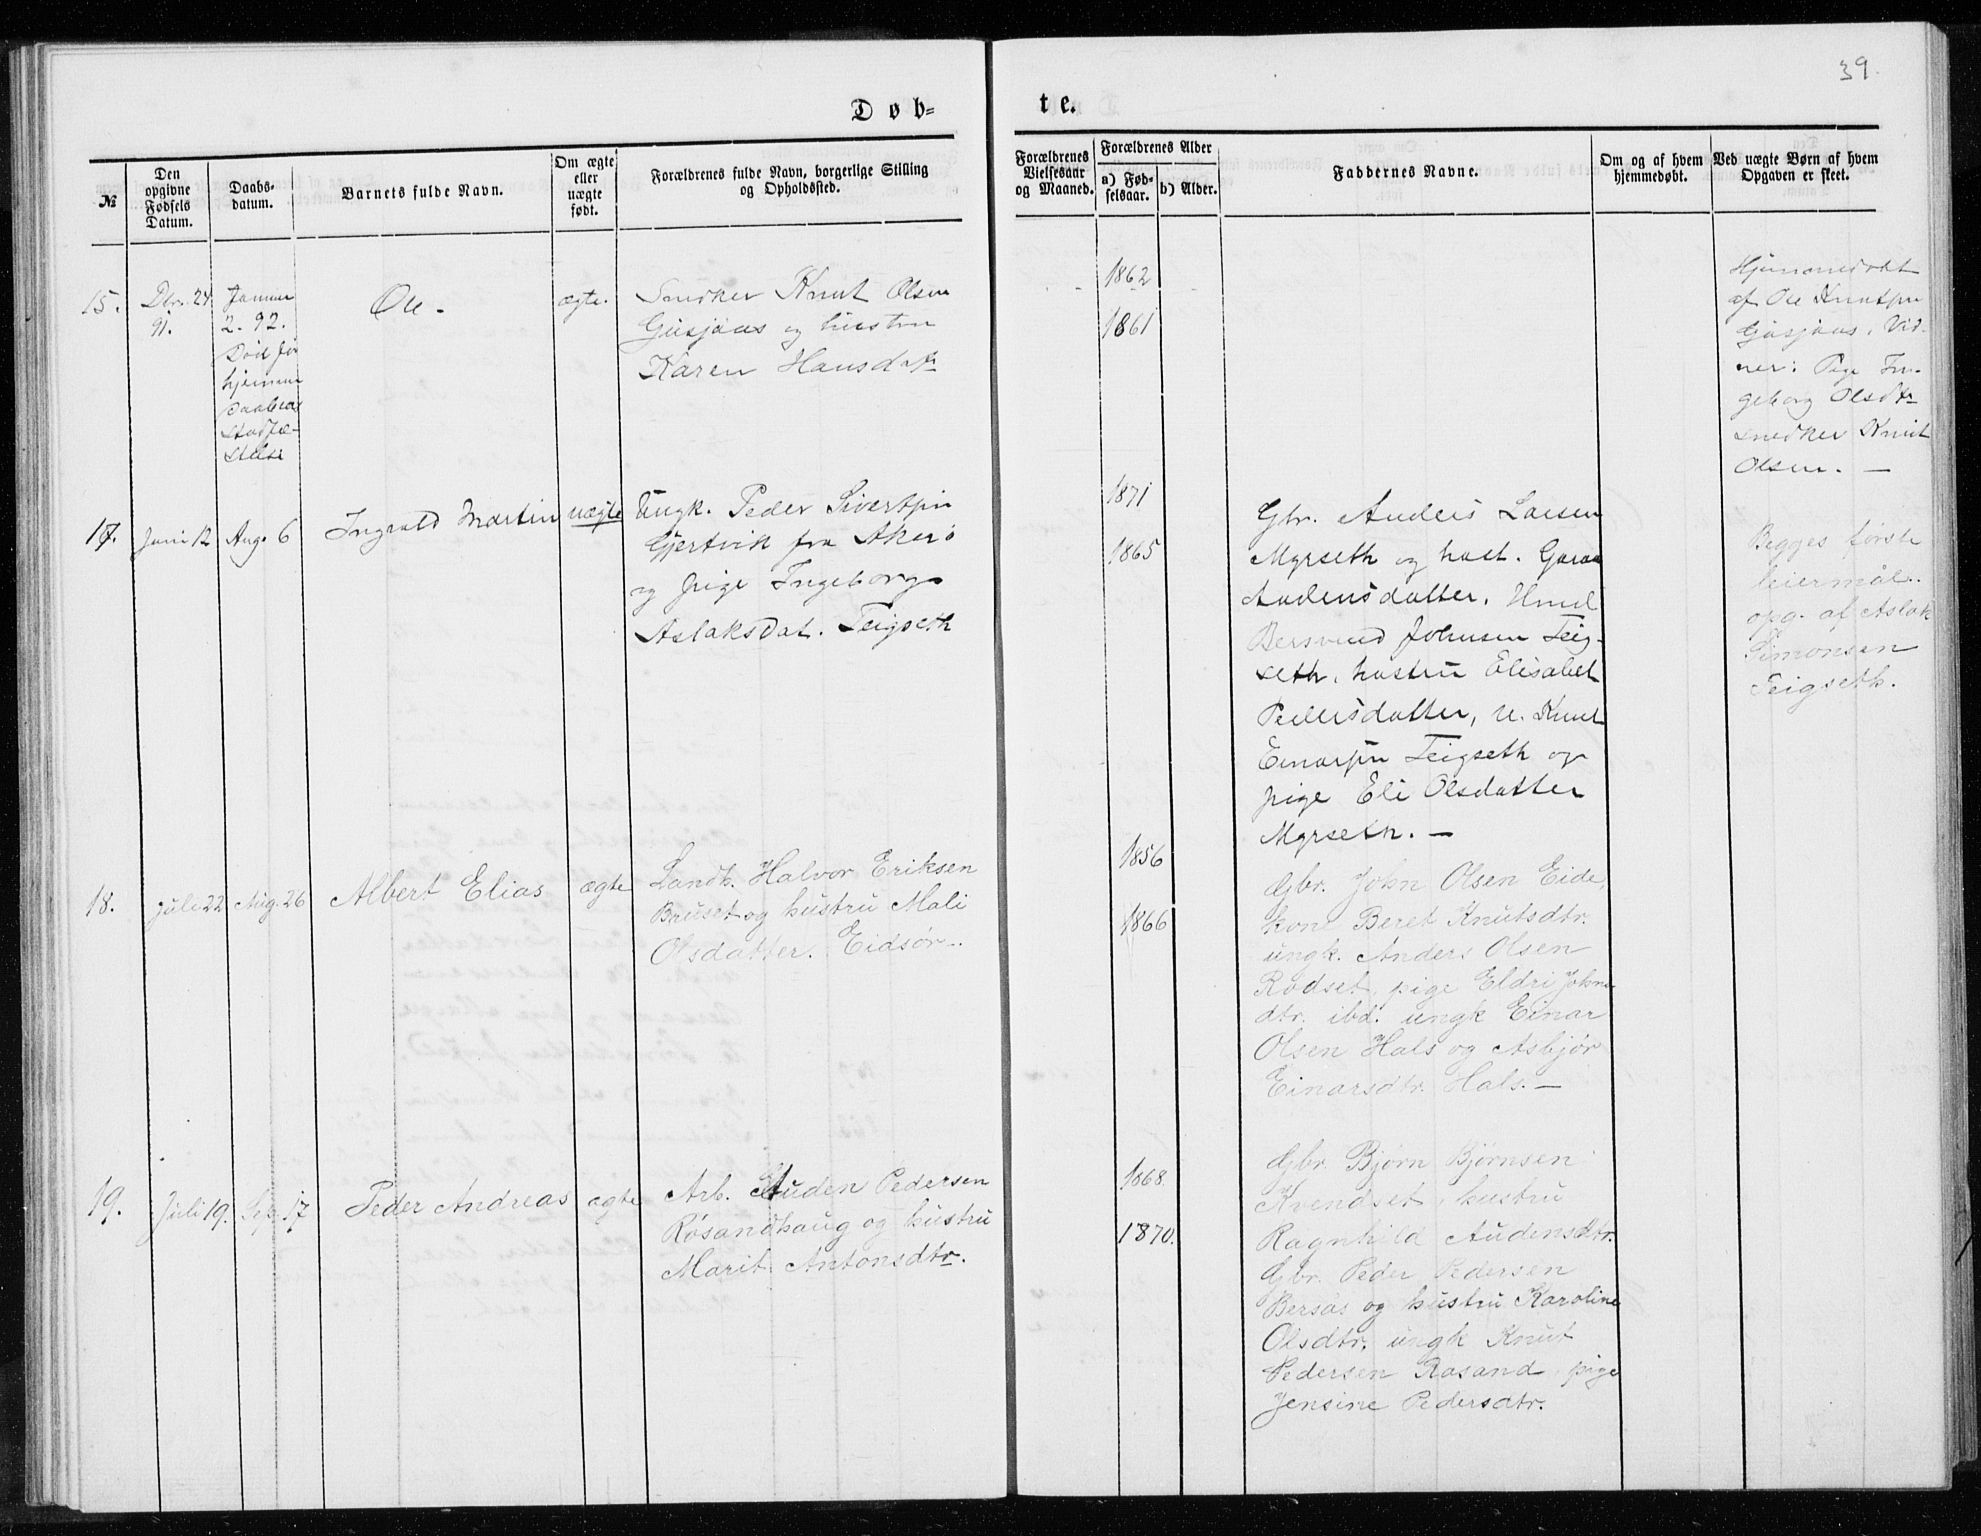 39.
Døb-
te.
№
Den
opgivne
Fødsels
Datum.
Daabs-
datum.
Barnets fulde Navn.
Om ægte
eller
uægte
født.
Forældrenes fulde Navn, borgerlige Stilling
og Opholdssted.
Forældrenes
Vielsesaar
og Maaned.
Forældrenes Alder
a) Fød-
selsaar.
b) Alder.
Faddernes Navne.
Om og af hvem
hjemmedøbt.
Ved uægte Børn af hvem
Opgaven er skeet.
15.
Dbr. 24
91.
Januar
2. 92.
Død før
hjemme
daabens
Stadfæ-
stelse
Ole.
ægte.
Snedker Knut Olsen
Gusjaas og hustru
Karen Hansdatr
1862
1861
Hjemmedøbt
af Ole Knutsen
Gusjaas. Vid-
ner: Pige In-
geborg Olsdtr
snedker Knut
Olsen. —
17.
Juni 12
Aug. 6
Ingvald Martin
uægte
Ungk. Peder Sivertsen
Gjertvik fra Akerö
og pige Ingeborg
Aslaksdat. Teigseth
1871
1865
Gbr. Anders Larsen
Myrseth og hust.
Audensdatter,
Bersvend Johnsen Teig-
seth, hustru Elisabet
Pedersdatter, u. Knut
Einarsen Teigseth og
pige Eli Olsdatter
Myrseth. —
Begges første
leiermål.
opg. af Aslak
Simonsen
Teigseth.
18.
Juli 22
Aug. 26
Albert Elias
ægte
Landh. Halvor Eriksen
Bruset og hustru Mali
Olsdatter. Eidsör.
1856
1866
Gbr. John Olsen Eide,
kone Beret Knutsdtr.
ungk. Anders Olsen
Rødset, pige Eldri Johns
dtr. ibd. ungk Einar
Olsen Hals og Asbjør
Einarsdtr. Hals. —
19.
Juli 19.
Sep. 17
Peder Andreas
ægte
Arb. Auden Pedersen
Røsandhaug og hustru
Marit Antonsdtr.
1868.
1870.
Gbr. Bjørn Bjørnsen
Kvendset, hustru
Ragnhild Audensdtr.
Gbr. Peder Pedersen
Bersås og hustru Karoline
Olsdtr, ungk Knut
Pedersen Røsand, pige
Jensine Pedersdtr.